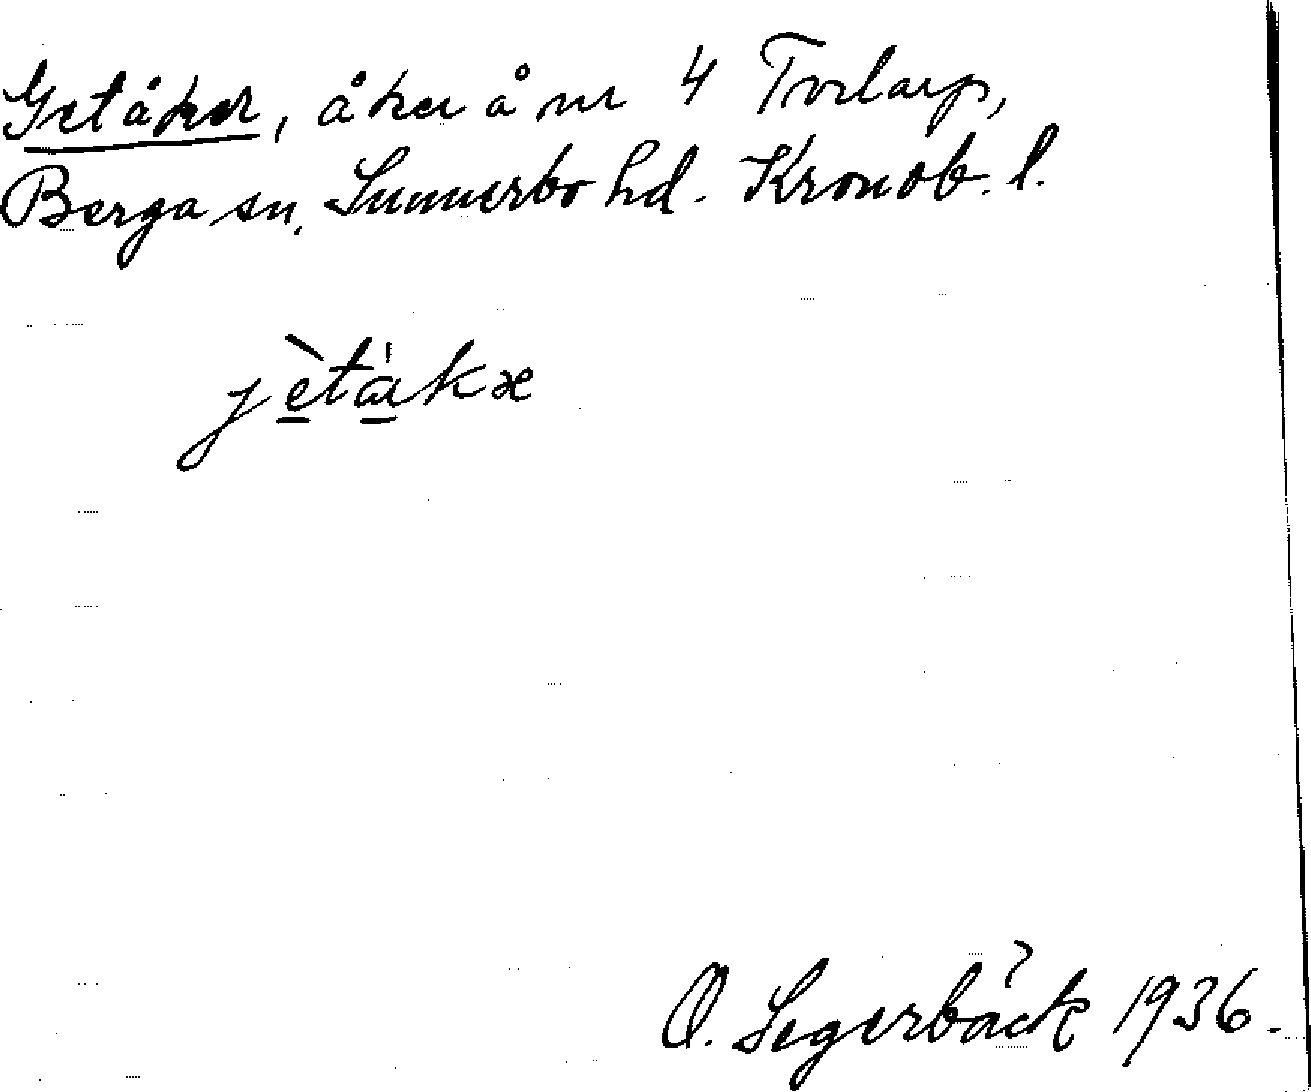 Getåker, åker å nr 4 Torlarp,
Berga sn. Sunnerbo hd. Kronob. l.
jètákæ
O. Segerbäck 1936.